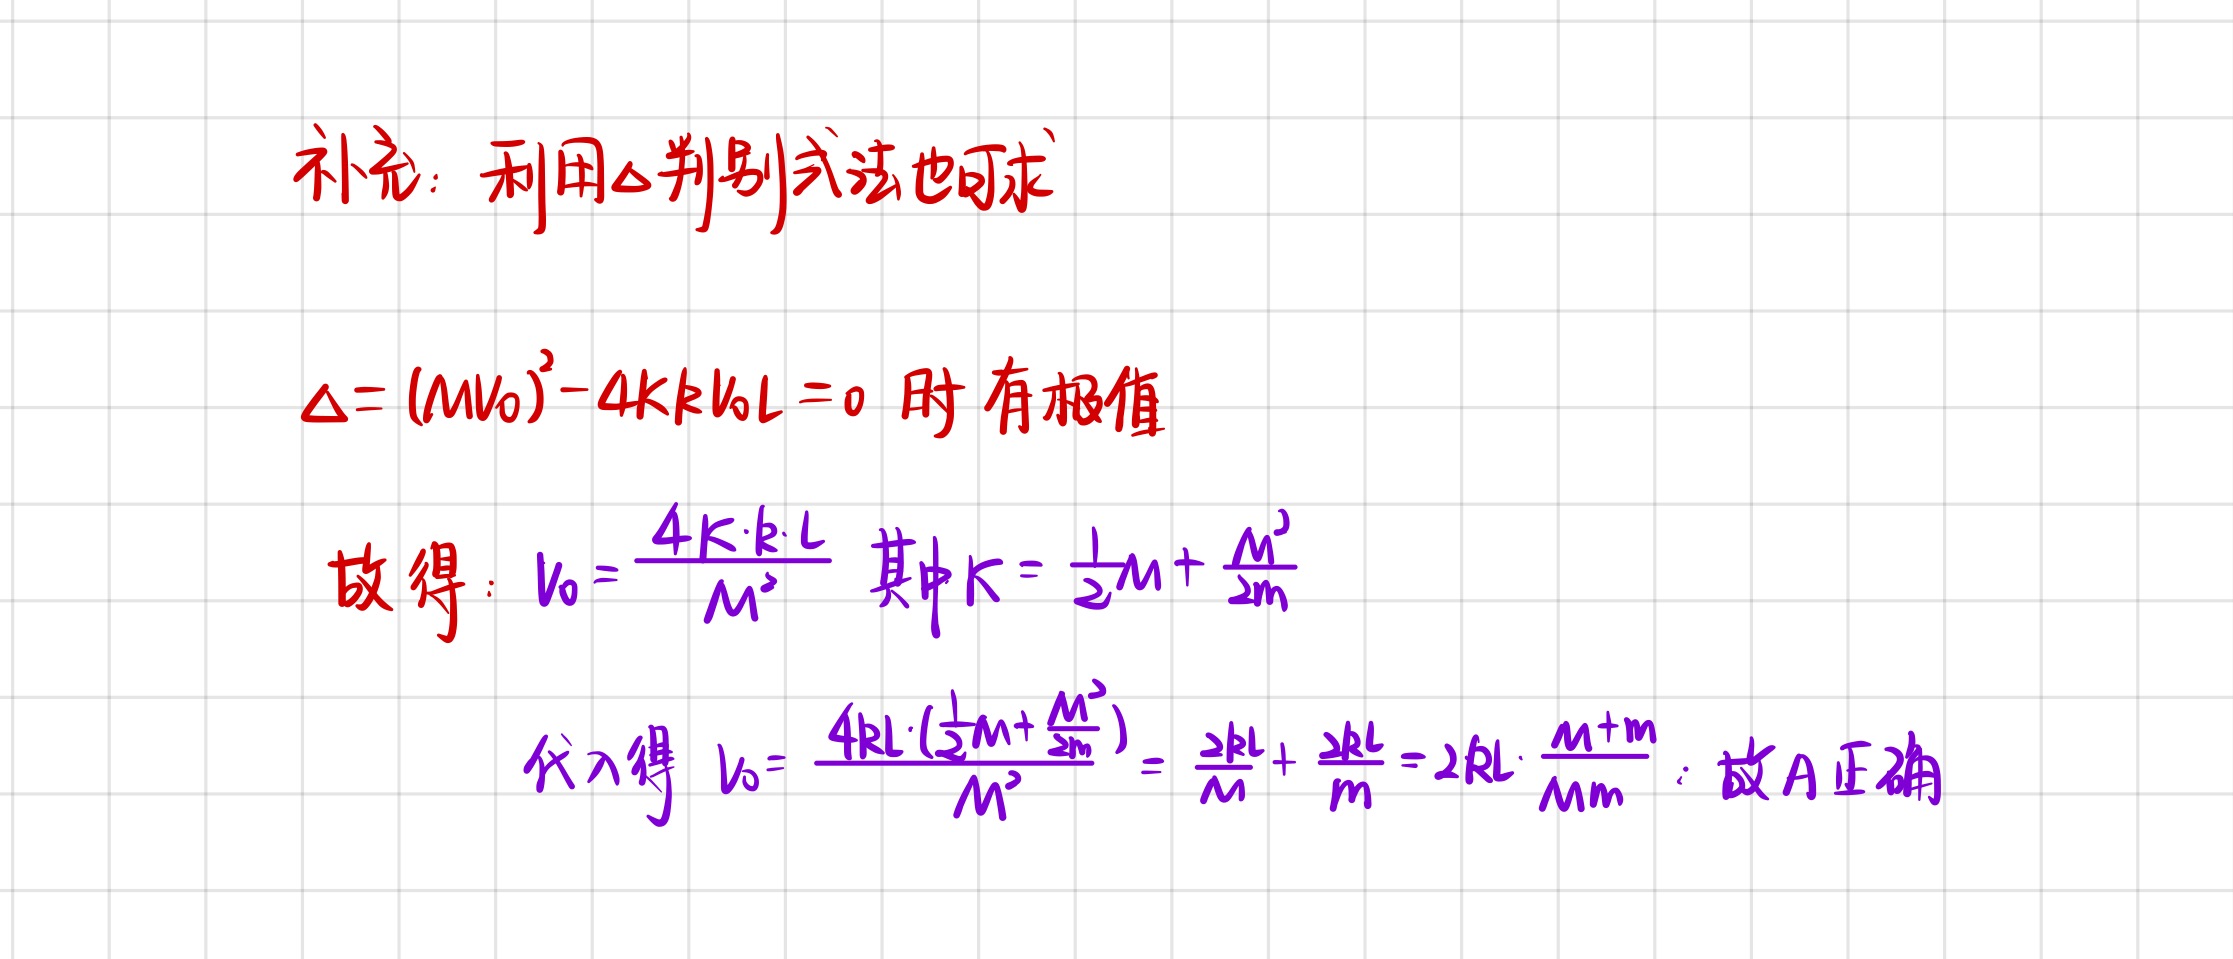 补充：利用△判别式法也可求
△=(MV₀)²-4KkV₀L=0 时有极值
故得：V₀=\frac{4K·k·L}{M²} 其中K=\frac{1}{2}M+\frac{M²}{2m}
代入得 V₀=\frac{4kL·(\frac{1}{2}M+\frac{M²}{2m})}{M²}=\frac{2kL}{M}+\frac{2kL}{m}=2kL·\frac{M+m}{Mm}：故A正确